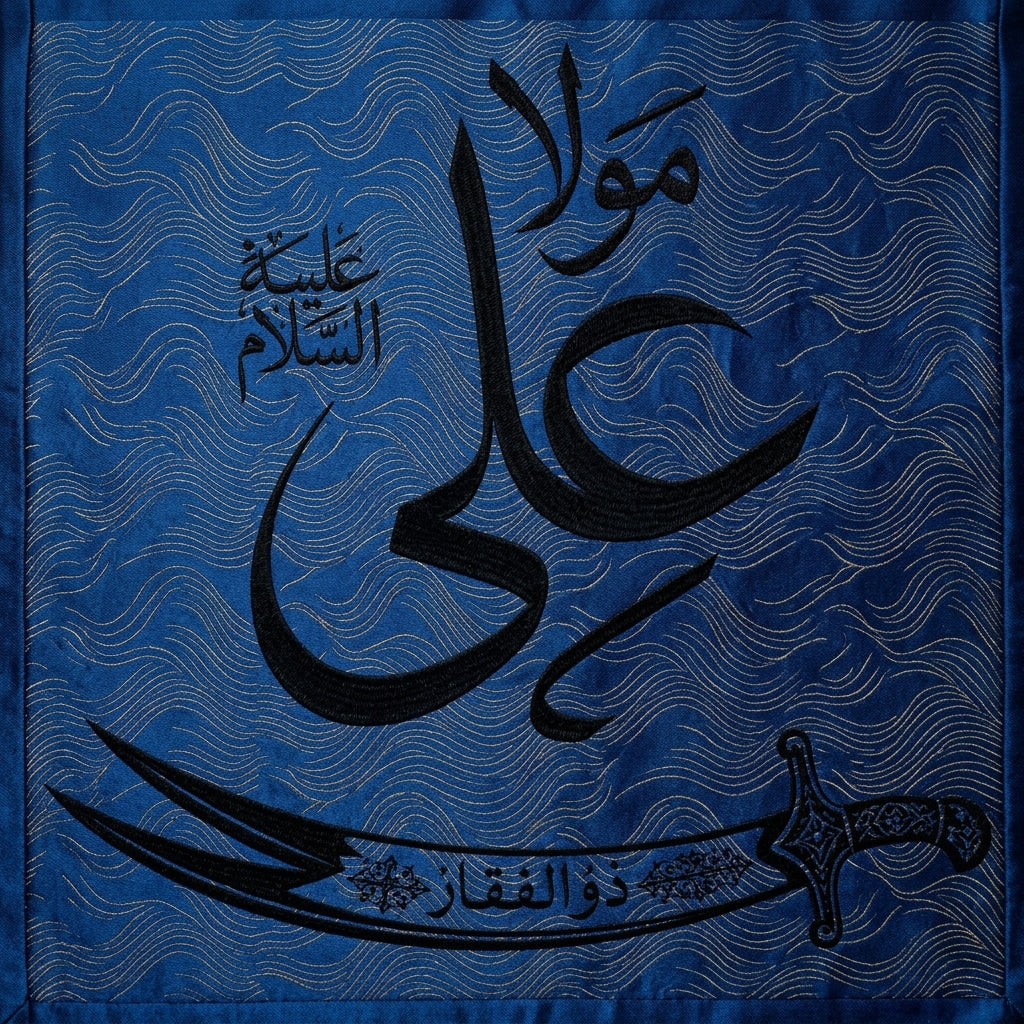 مَولا
علی
السَّلام
ذُو الفقار